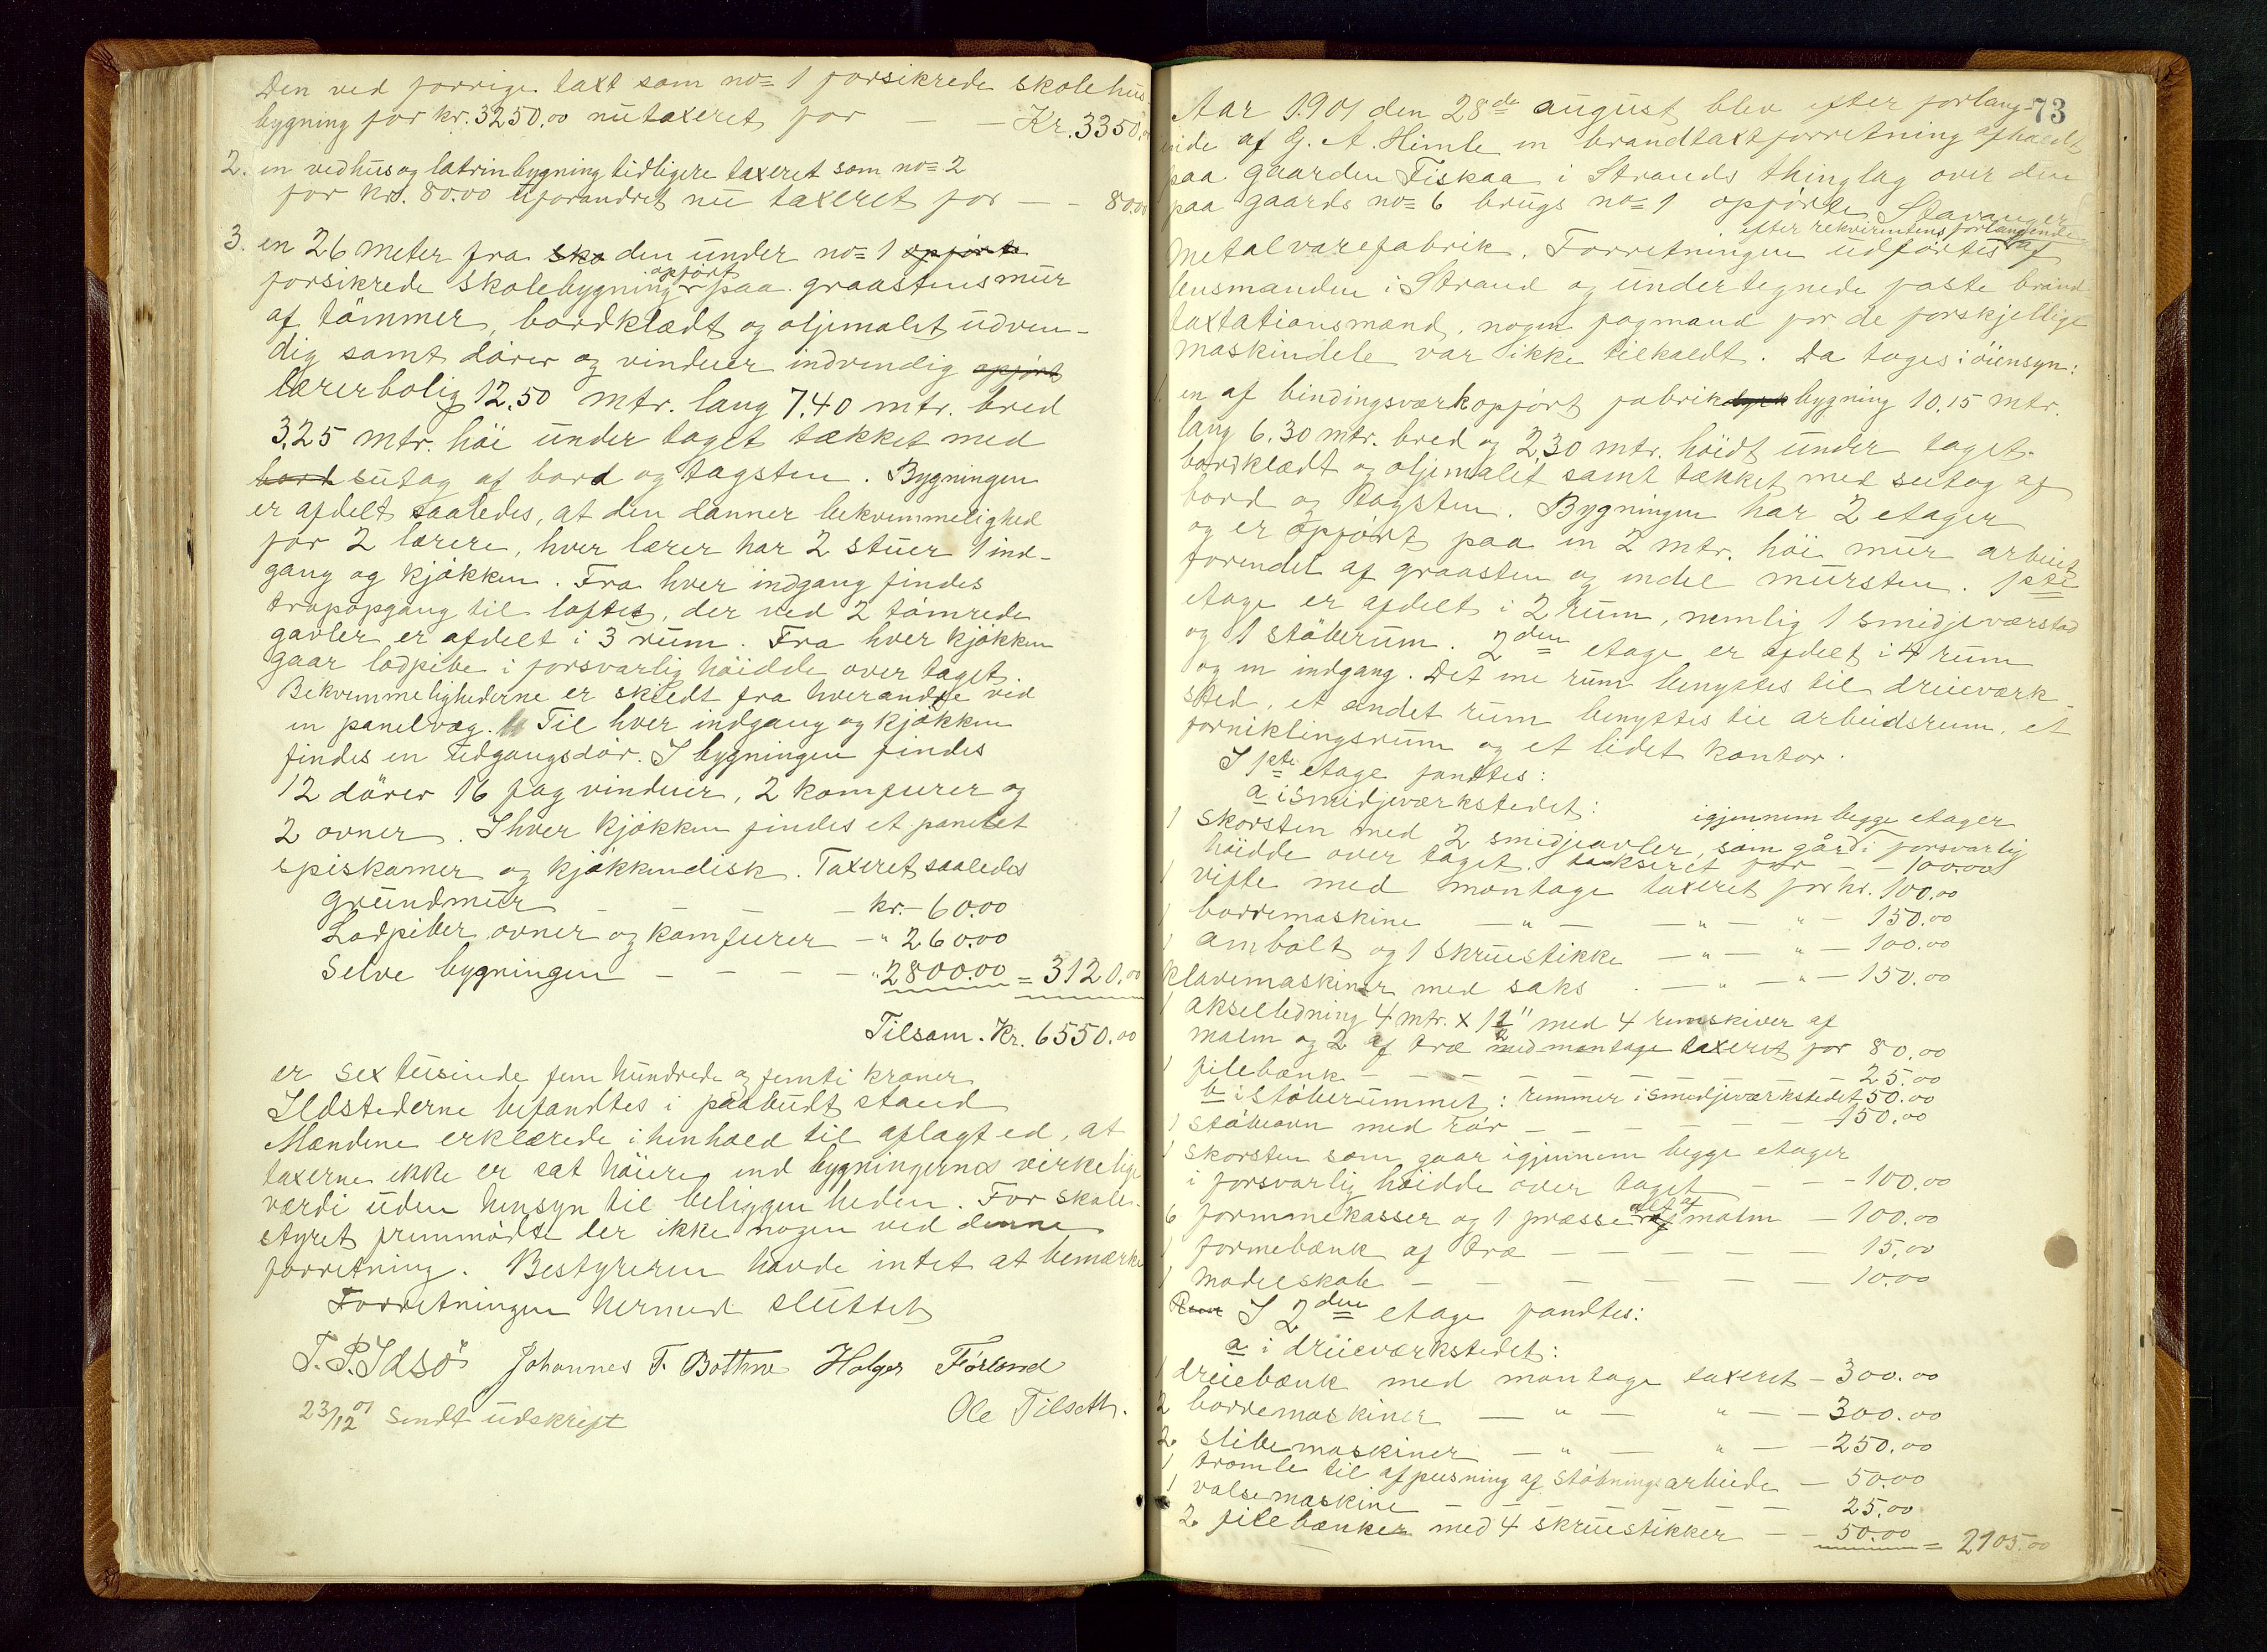 Den ved forrige taxt som no= 1 forsikrede skolehus-
bygning for kr. 3250.00 nu taxeret for — — Kr. 3350.00
2. en vedhus og latrinbygning tidligere taxeret som no= 2
for kr. 80.00 uforandret nu taxeret for — - 80.00
3. en 26 meter fra sko den under no= 1 opført
forsikrede skolebygning opført paa graastensmur
af tömmer, bordklædt og oljemalet udven-
dig samt dörer og vinduer indvendig opført
lærerbolig 12.50 mtr. lang 7.40 mtr. bred
3.25 mtr. höi under taget tækket med
bord sutag af bord og tagsten. Bygningen
er afdelt saaledes, at den danner bekvemmelighed
for 2 lærere, hver lærer har 2 stuer 1 ind-
gang og kjökken. Fra hver indgang findes
trapopgang til loftet, der ved 2 tömrede
gavler er afdelt i 3 rum. Fra hver kjökken
gaar ladpibe i forsvarlig höidde over taget.
Bekvemmelighederne er skildt fra hverandre ved
en panelvæg. Til hver indgang og kjökken
findes en udgangsdör. I bygningen findes
12 dörer 16 fag vinduer, 2 komfurer og
2 ovner. I hver kjökken findes et panelet
spiskamer og kjökkendisk. Taxeret saaledes
Grundmur — — — kr. - 60.00
Ladpiber ovner og komfurer — " 260.00
Selve bygningen — — — — " 2800.00 = 3120.00
Tilsam. Kr. 6550.00
er sex tusinde fem hundrede og femti kroner
Ildstederne befandtes i paabudt stand
Mændene erklærede i henhold til aflagt ed, at
taxerne ikke er sat höiere end bygningernes virkelige
værdi uden hensyn til beliggenheden. For skole-
styret fremmödte der ikke nogen ved denne
forretning. Bestyreren havde intet at bemærke
Forretningen hermed sluttet
T. P. Idsö Johannes T. Bottne Holger Förland
Ole Tilseth.
23/12 01 Sendt udskrift
73
Aar 1901 den 28de august blev efter forlang-
ende af G. A. Himle en brandtaxtforretning afholdt
paa gaarden Fiskaa i Strands thinglag over den
paa gaards no= 6 brugs no= 1 opførte Stavanger
efter rekvirentens forlangende
Metalvarefabrik. Forretningen udförtes af
lensmanden i Strand og undertegnede faste brand-
taxtationsmænd, nogen fagmand for de forskjellige
maskindele var ikke tilkaldt. Da toges i öiensyn:
1. en af bindingsværk opført fabrik bygning 10.15 mtr.
lang 6.30 mtr. bred og 2.30 mtr. höidt under taget.
bordklædt og oljemalet samt tækket med sutag af
bord og tagsten. Bygningen har 2 etager
og er opført paa en 2 mtr. höi mur arbeidt
forendel af graasten og endel mursten. 1ste
etage er afdelt i 2 rum, nemlig 1 smidjeværsted
og 1 stöberum. 2den etage er afdelt i 4 rum
og en indgang. Det ene rum benyttes til dreieværk-
sted, et andet rum benyttes til arbeidsrum, et
forniklingsrum og et lidet kontor.
I 1ste etage fandtes:
a i smidjeværkstedet:
igjennem begge etager
1 skorsten med 2 smidjeavler, som gård i forsvarlig
höidde over taget. takseret for — - 100.00
1 vifte med montage taxeret for kr. 100.00
1 borremaskine — " — — " — " — 150.00
1 ambolt og 1 skruestikke — " — " — 100.00
klavemaskiner med saks — " — " — 150.00
1 akselledning 4 mtr. x 1 1/2" med 4 remskiver af
malm og 2 af træ med montage taxeret for 80.00
1 filebænk — — — — — — — — 25.00
b i stöberummet: remmer i smedjeværkstedet 50.00
1 stöbeovn med rör — — — — — 150.00
1 skorsten som gaar igjennem begge etager
i forsvarlig höidde over taget — — - 100.00
6 formmekasser og 1 præsse alt af malm — 100.00
1 formebænk af træ — — — — 15.00
1 modelskab — — — — — — 10.00
I 2den etage fandtes:
a i dreieværkstedet:
1 dreiebænk med montage taxeret — 300.00
2 borremaskiner — " — " — — 300.00
2 slibemaskiner — " — " — — 250.00
1 tromle til afpusning af stöbningsarbeide — 50.00
1 valsemaskine — — — — — — — 25.00
2 filebænker med 4 skruestikker — — 50.00 = 2105.00